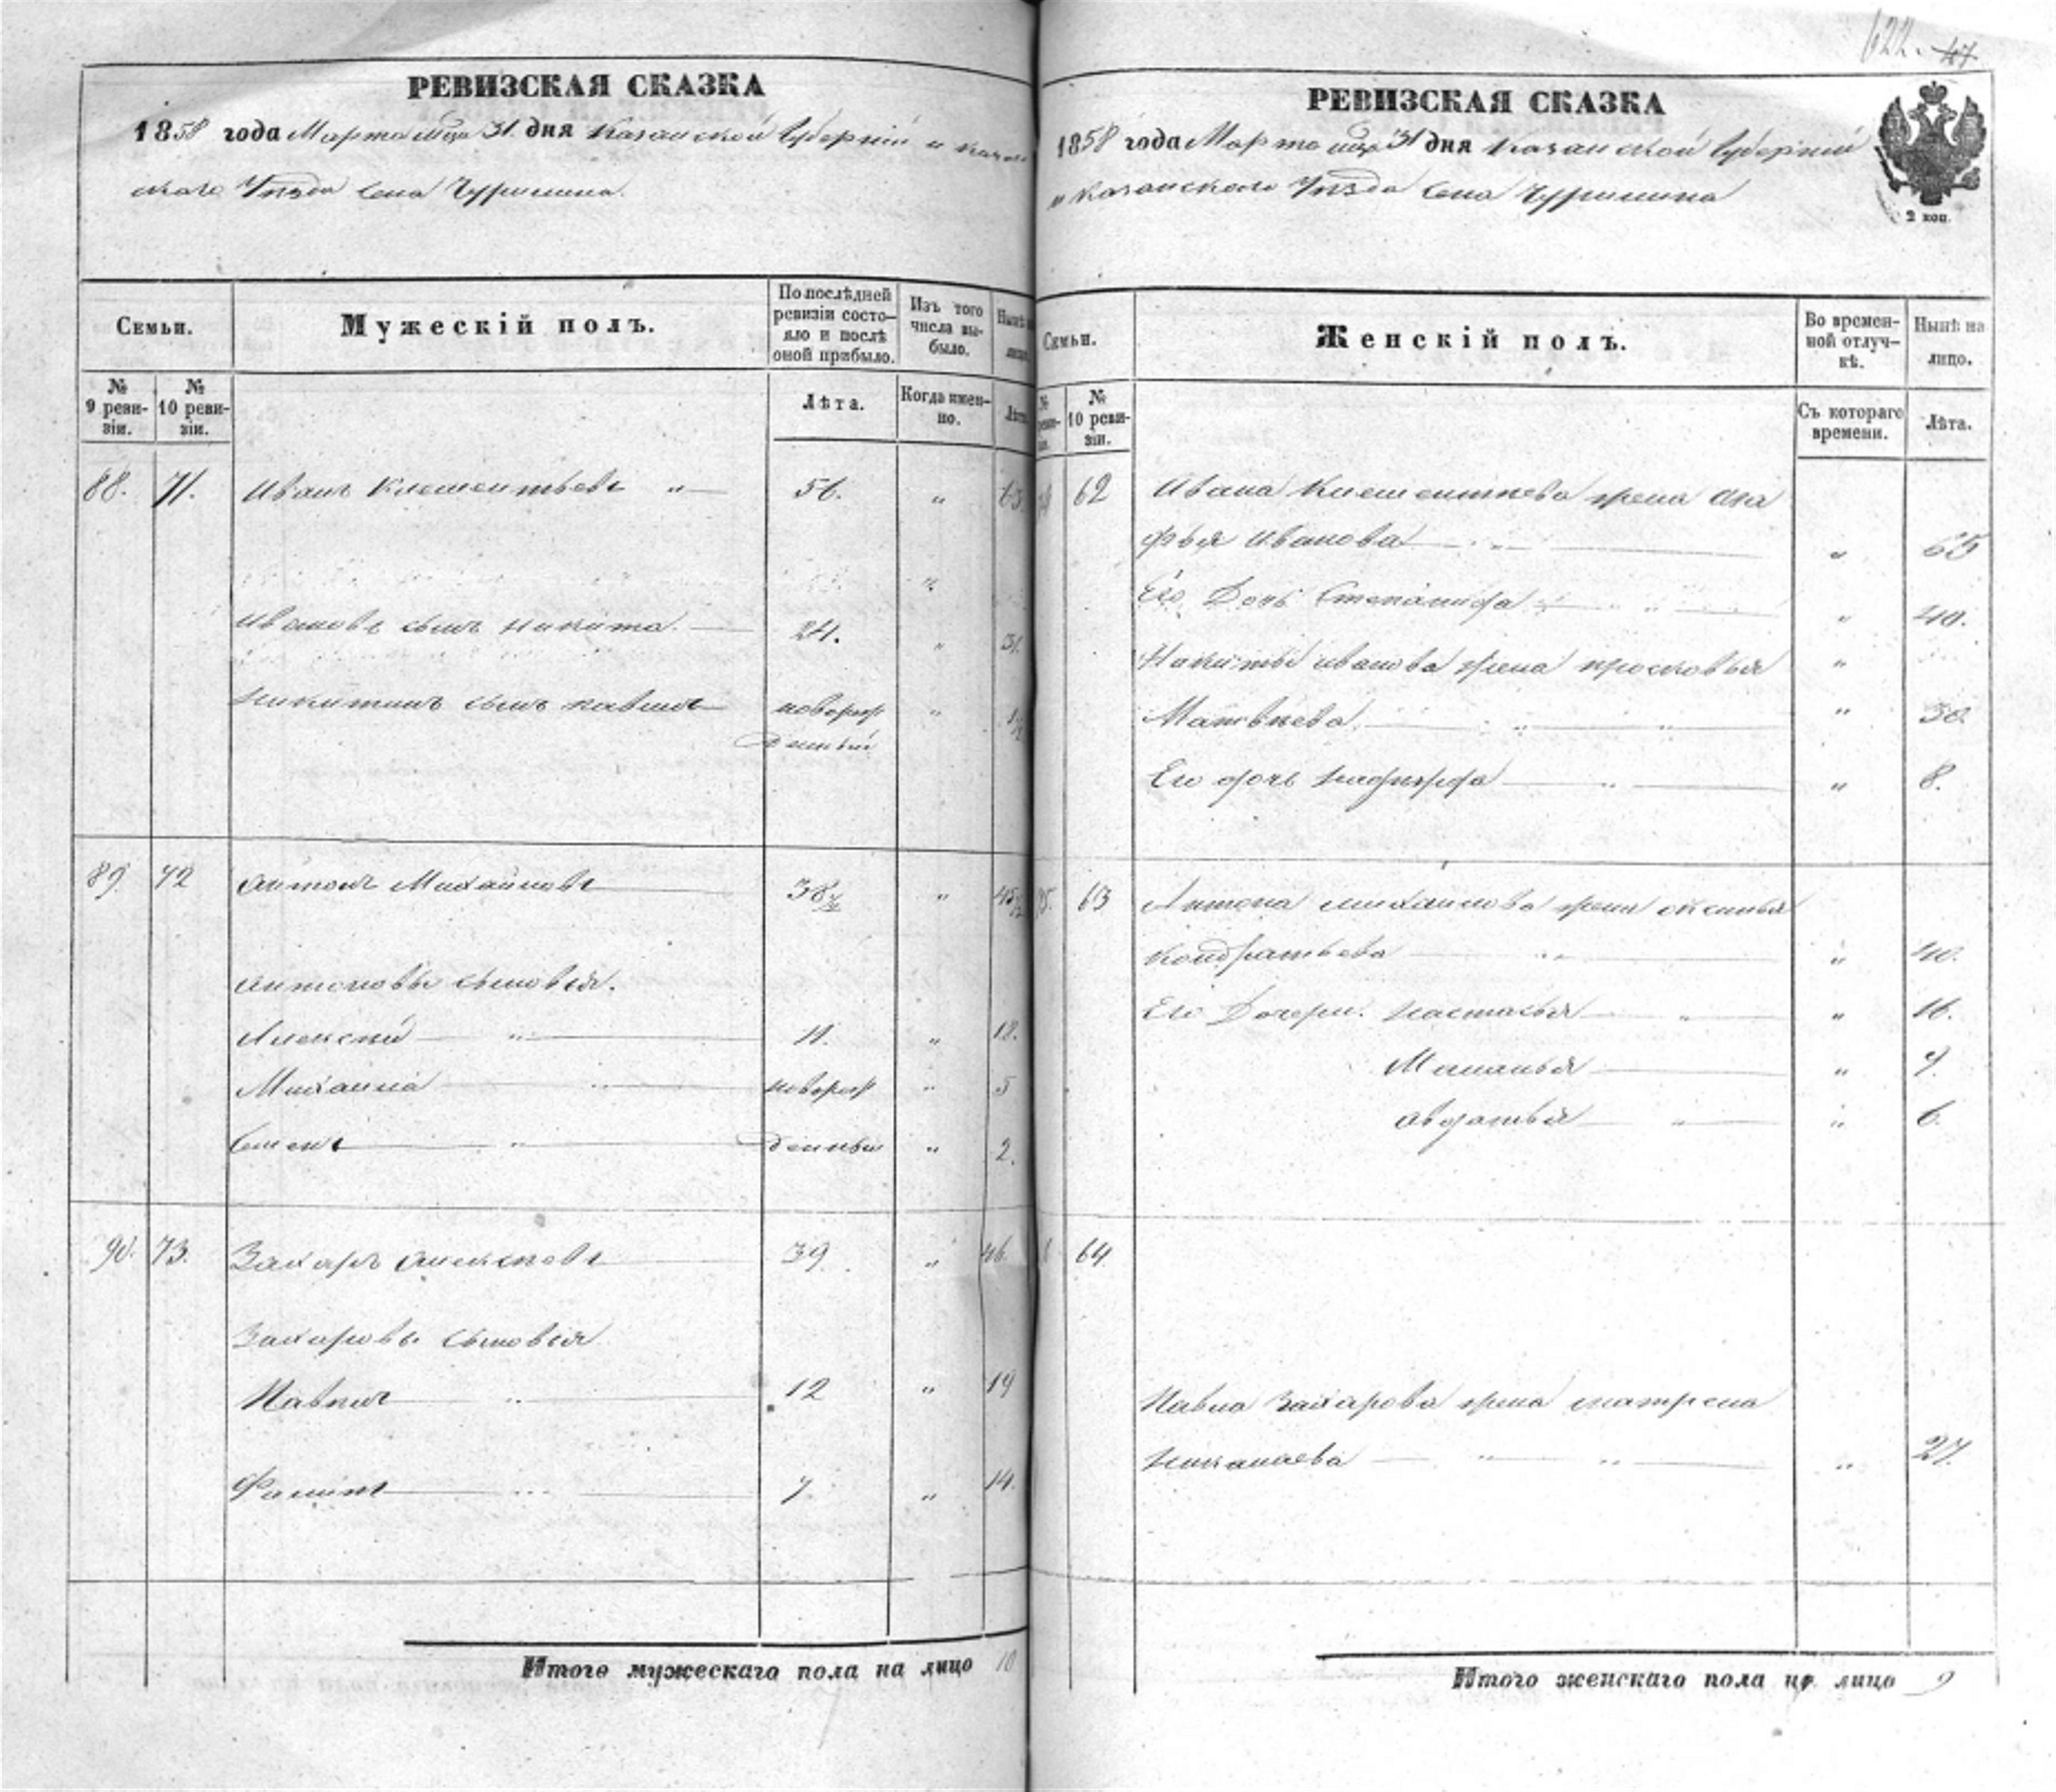 622. 47
РЕВИЗСКАЯ СКАЗКА
1858 года Марта мца 31 дня Казанской Губерніи и Казан
скаго Уѣзда Села Чурилина.
Семьи.
Мужескій полъ.
По послѣдней ревизіи состояло и послѣ оной прибыло.
Изъ того числа выбыло.
№ 9 ревизіи.
№ 10 ревизіи.
Лѣта.
Когда именно.
88. 71. Иванъ Клементьевъ " 56. " 63.
Ивановъ сынъ Никита. 24. " 31.
Никитинъ сынъ Павелъ новорож "
денный
89. 72 Антонъ Михайловъ 38 "
Антоновы сыновья.
Алексѣй " 11. " 18.
Михайла " новорож " 5
Семенъ " денные " 2.
90. 73. Захаръ Алексѣевъ 39 " 46.
Захаровы сыновья
Павелъ " 12 " 19
Филипъ " 7 " 14.
Итого мужескаго пола на лицо 10
РЕВИЗСКАЯ СКАЗКА
1858 года Марта мца 31 дня Казанской Губерніи
и Казанскаго Уѣзда Села Чурилина
2 коп.
Семьи.
Женскій полъ.
Во временной отлучкѣ.
Нынѣ на лицо.
№ 10 ревизіи.
Съ котораго времени.
Лѣта.
62 Ивана Клементьева жена Ага
фья Иванова " " 65
Его Дочь Степанида " " 40.
Никиты Иванова жена Прасковья "
Матвѣева " " " 30.
Его дочь Надежда " " 8.
63 Антона Михайлова жена Аксинья
Кондратьева " " 40.
Его Дочери. Настасья " " 16.
Маланья " 9.
Авдотья " " 6.
64
Павла Захарова жена Матрена
Николаева " " " 27.
Итого женскаго пола на лицо 9